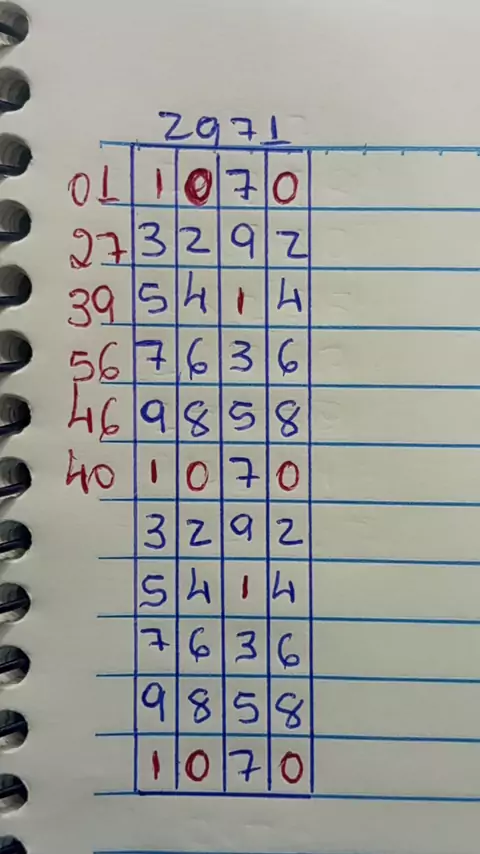 2971
01 1 0 7 0
27 3 2 9 2
39 5 4 1 4
56 7 6 3 6
46 9 8 5 8
40 1 0 7 0
3 2 9 2
5 4 1 4
7 6 3 6
9 8 5 8
1 0 7 0